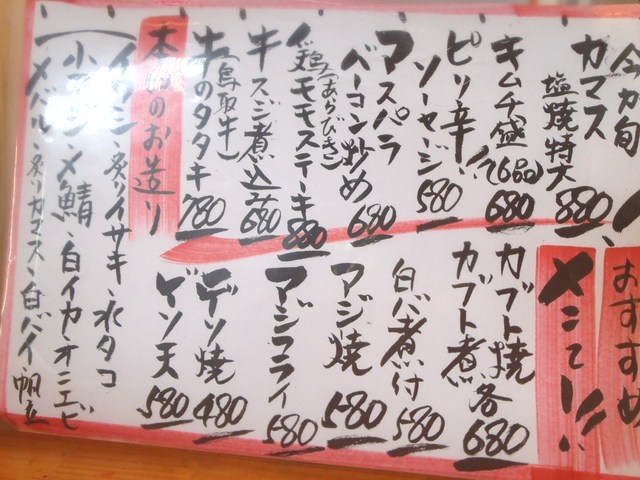 今が旬!
おすすめ
メニュー!!
カマス
塩焼特大 880
キムチ盛(6品) 680
ピリ辛!
ソーセージ 580
アスパラ
ベーコン炒め 680
鶏モモステーキ 880
(あらびき)
牛スジ煮込み 680
牛のタタキ 780
(鳥取牛)
カブト焼
カブト煮 各680
白バイ煮付 580
アジ焼 580
アジフライ 580
ゲソ焼 480
ゲソ天 580
本日のお造り
イワシ、炙りイサキ、水タコ
小アジ、〆鯖、白イカ、オニエビ
メバル、炙りカマス、白バイ、帆立